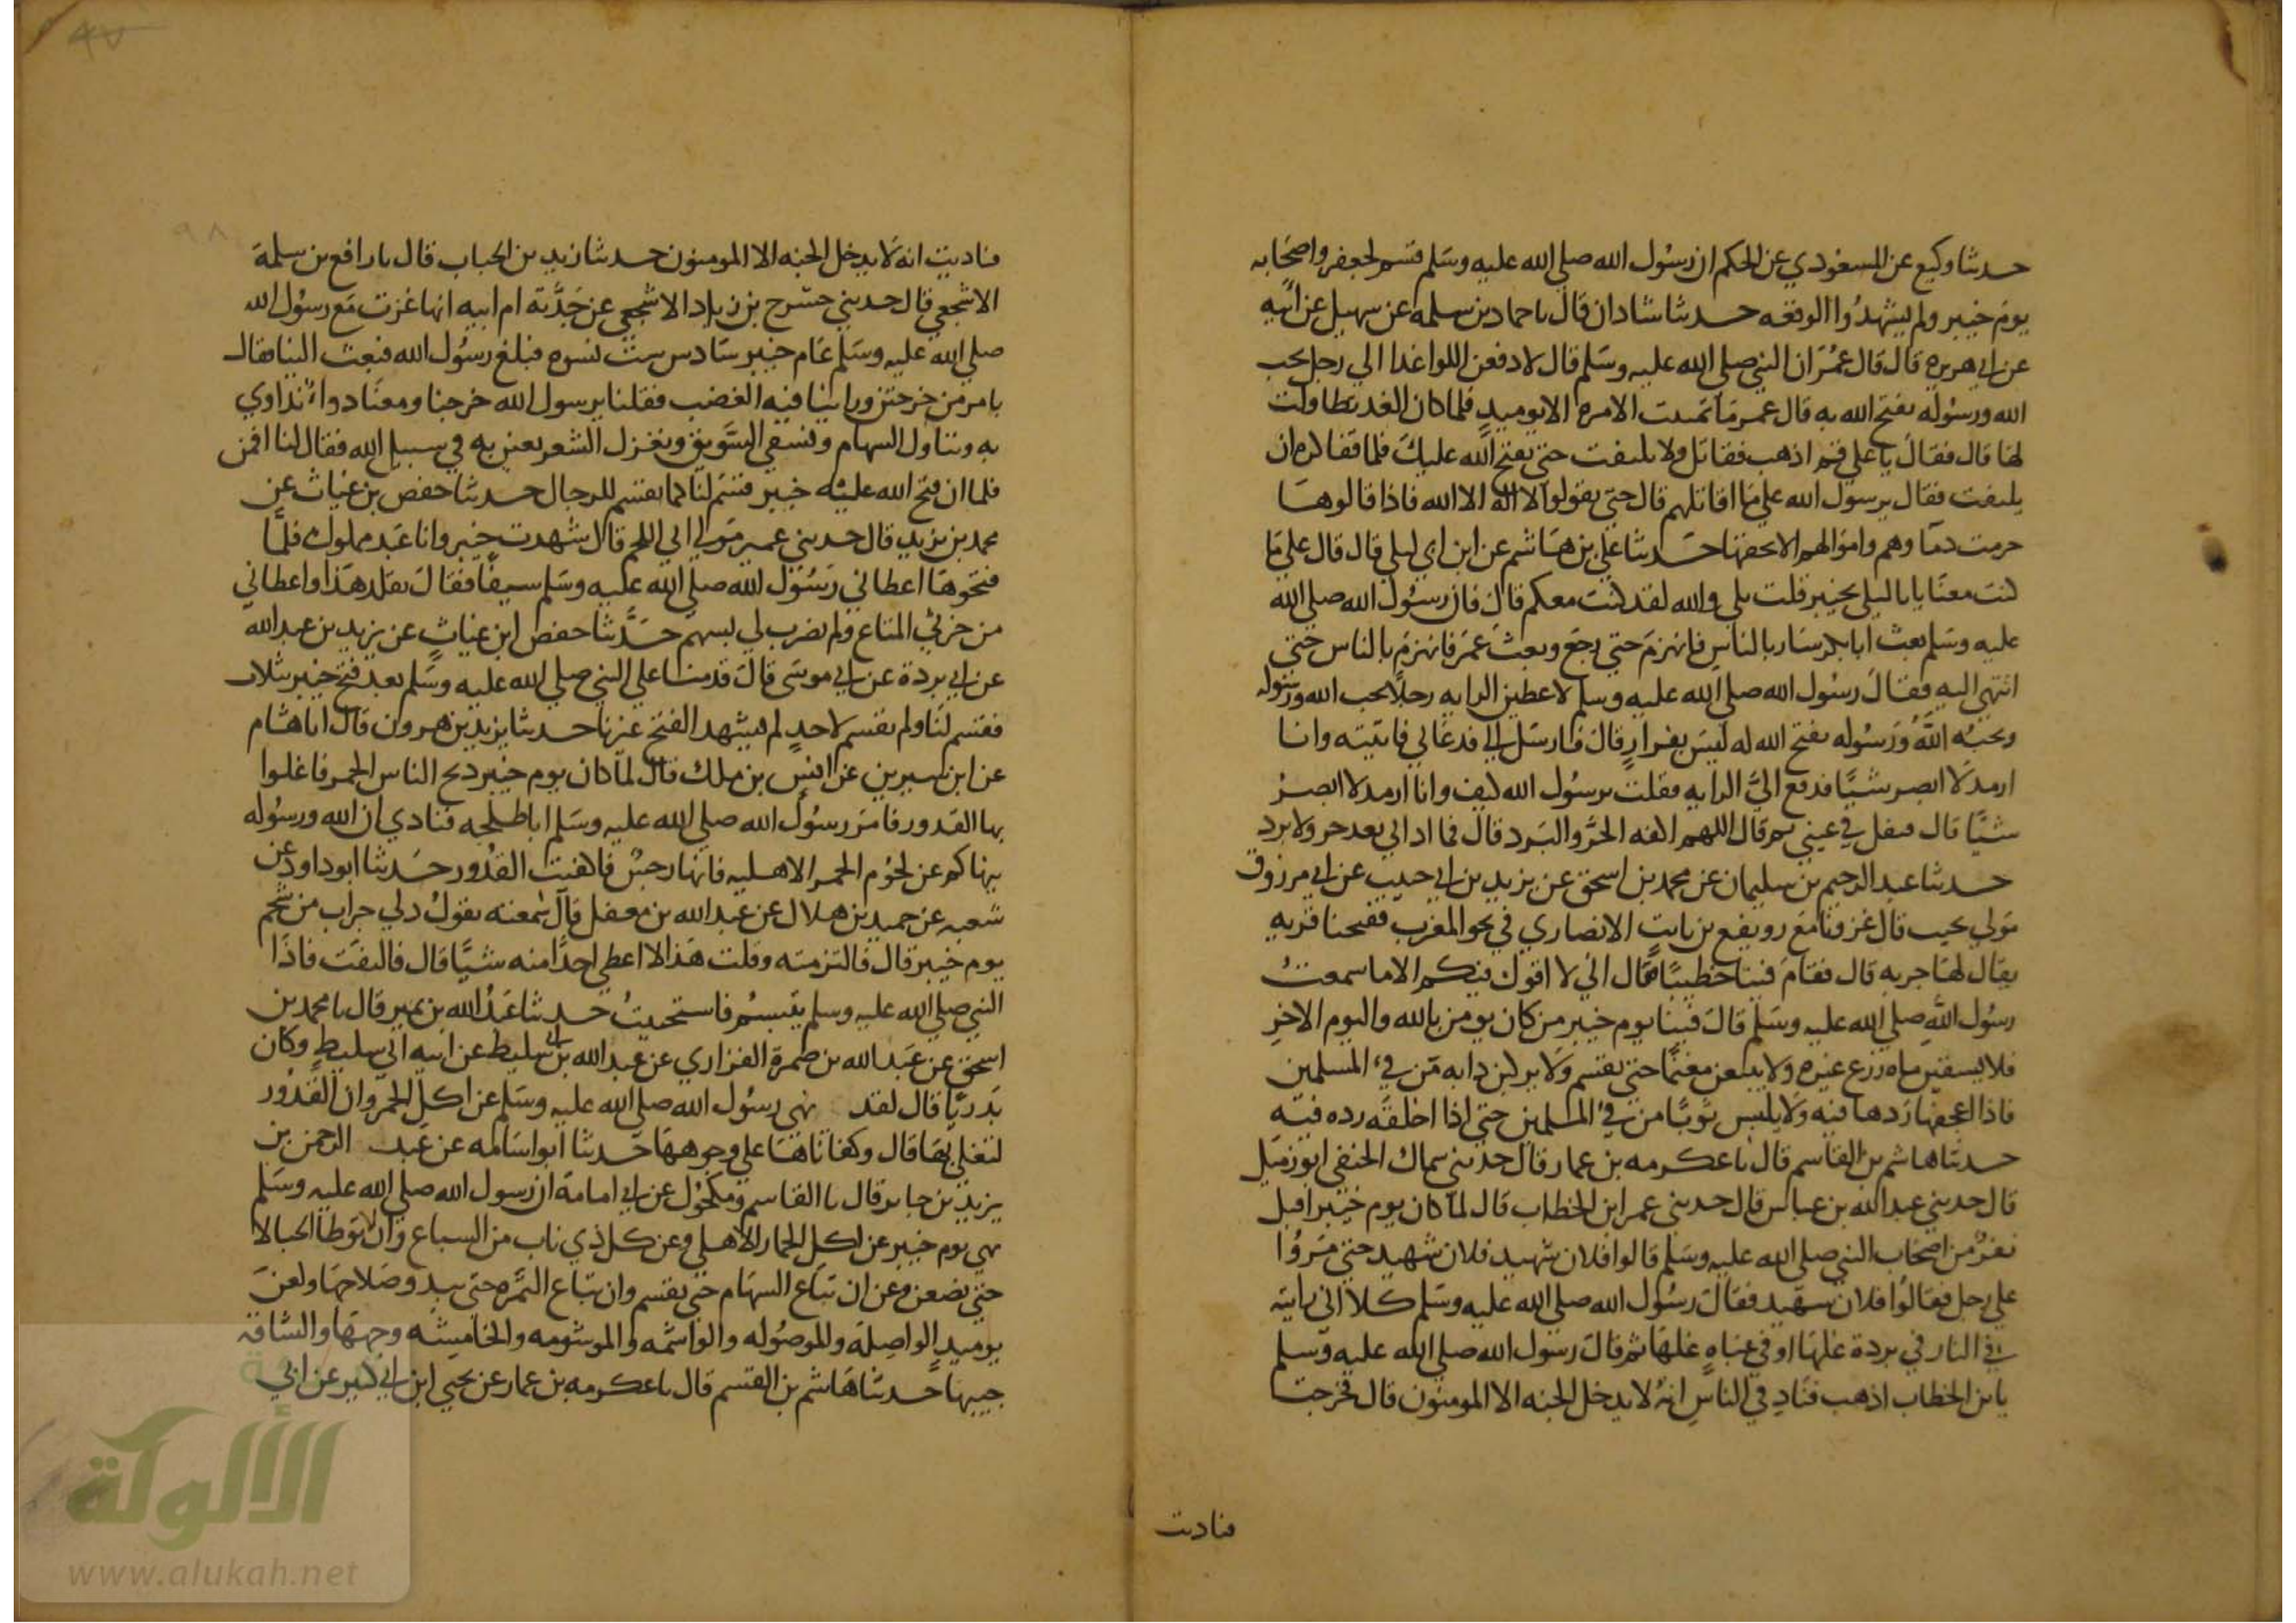 حدثنا وكيع عن المسعودي عن الحكم ان رسول الله صلي الله عليه وسلم قسم لجعفر واصحابه
يوم خيبر ولم يشهدوا الوقعه حدثنا شاذان قال نا حماد بن سلمه عن سهيل عن ابيه
عن ابي هريره قال قال عمر ان النبي صلي الله عليه وسلم قال لادفعن اللوا غدا الي رجل يحب
الله ورسوله يفتح الله به قال عمر ما تمنيت الامره الا يوميد فلما كان الغد تطاولت
لها قال فقال يا علي قم اذهب فقاتل ولا يلتفت حتي يفتح الله عليك فلما قفا كره ان
يلتفت فقال يرسول الله علي ما اقاتلهم قال حتي يقولوا لا اله الا الله فاذا قالوها
حرمت دماوهم واموالهم الا بحقها حدثنا علي بن هاشم عن ابن ابي ليلي قال قال علي ما
كنت معنا يابا ليلي بخيبر قلت بلي والله لقد كنت معكم قال فان رسول الله صلي الله
عليه وسلم بعث ابا بكر سار بالناس فانهزم حتي رجع وبعث عمر فانهزم بالناس حتي
انتهي اليه فقال رسول الله صلي الله عليه وسلم لاعطين الرايه رجلا يحب الله ورسوله
ويحبه الله ورسوله يفتح الله له ليس بفرار قال فارسل الي فدعاني فاتيته وانا
ارمد لا ابصر شيا فدفع الي الرايه فقلت يرسول الله كيف وانا ارمد لا ابصر
شيا قال فتفل في عيني ثم قال اللهم اكفه الحر والبرد قال فما اداني بعد حر ولا برد
حدثنا عبد الرحيم بن سليمان عن محمد بن اسحق عن يزيد بن ابي حبيب عن ابي مرزوق
مولي تجيب قال غزونا مع رويفع بن ثابت الانصاري في نحو المغرب ففتحنا قريه
يقال لها جربه قال فقام فينا خطيبا فقال اني لا اقول فيكم الا ما سمعت
رسول الله صلي الله عليه وسلم قال فينا يوم خيبر من كان يومن بالله واليوم الاخر
فلا يسقين ماه زرع غيره ولا يبيعن مغنما حتي يقسم ولا يركبن دابه من فيء المسلمين
فاذا اعجفها ردها فيه ولا يلبس ثوبا من فيء المسلمين حتي اذا اخلقه رده فيه
حدثنا هاشم بن القاسم قال نا عكرمه بن عمار قال حدثني سماك الحنفي ابو زميل
قال حدثني عبد الله بن عباس قال حدثني عمر ابن الخطاب قال لما كان يوم خيبر اقبل
نفر من اصحاب النبي صلي الله عليه وسلم قالوا فلان شهيد فلان شهيد حتي مروا
علي رجل فقالوا فلان شهيد فقال رسول الله صلي الله عليه وسلم كلا اني رايته
في النار في بردة غلها او في عباه غلها ثم قال رسول الله صلي الله عليه وسلم
يابن الخطاب اذهب فناد في الناس انه لا يدخل الجنه الا المومنون قال فخرجت
فناديت
٩٨
فناديت انه لا يدخل الجنه الا المومنون حدثنا زيد بن الحباب قال نا رافع بن سلمة
الاشجعي قال حدثني حشرج بن زياد الاشجعي عن جدته ام ابيه انها غزت مع رسول الله
صلي الله عليه وسلم عام خيبر سادس ست نسوه فبلغ رسول الله فبعث الينا فقال
بامر من خرجتن وراينا فيه الغضب فقلنا يرسول الله خرجنا ومعنا دواء نداوي
به ونناول السهام ونسقي السويق ونغزل الشعر نعين به في سبيل الله فقال لنا اقمن
فلما ان فتح الله عليه خيبر قسم لنا كما يقسم للرجال حدثنا حفص بن غياث عن
محمد بن يزيد قال حدثني عمير مولي ابي اللحم قال شهدت خيبر وانا عبد مملوك فلما
فتحوها اعطاني رسول الله صلي الله عليه وسلم سيفا فقال تقلد هذا واعطاني
من خرثي المتاع ولم يضرب لي بسهم حدثنا حفص ابن غياث عن يزيد بن عبد الله
عن ابي بردة عن ابي موسي قال قدمنا علي النبي صلي الله عليه وسلم بعد فتح خيبر بثلاث
فقسم لنا ولم يقسم لاحد لم يشهد الفتح غيرنا حدثنا يزيد بن هرون قال انا هشام
عن ابن سيرين عن انس بن ملك قال لما كان يوم خيبر ذبح الناس الحمر فاغلوا
بها القدور فامر رسول الله صلي الله عليه وسلم ابا طلحه فنادي ان الله ورسوله
ينهاكم عن لحوم الحمر الاهليه فانها رجس فاكفئت القدور حدثنا ابو داود عن
شعبه عن حميد بن هلال عن عبد الله بن مغفل قال سمعته يقول دلي جراب من شحم
يوم خيبر قال فالتزمته وقلت هذا لا اعطي احدا منه شيا قال فالتفت فاذا
النبي صلي الله عليه وسلم يتبسم فاستحييت حدثنا عبد الله بن نمير قال نا محمد بن
اسحق عن عبد الله بن ضمرة الفزاري عن عبد الله بن ابي سليط عن ابيه ابي سليط وكان
بدريا قال لقد نهي رسول الله صلي الله عليه وسلم عن اكل الحمر وان القدور
لتغلي بها قال وكفاناها علي وجوهها حدثنا ابو اسامه عن عبد الرحمن بن
يزيد بن جابر قال نا القاسم ومكحول عن ابي امامة ان رسول الله صلي الله عليه وسلم
نهي يوم خيبر عن اكل الحمار الاهلي وعن كل ذي ناب من السباع وان لا توطا الحبالا
حتي يضعن وعن ان تباع السهام حتي يقسم وان تباع الثمره حتي يبدو صلاحها ولعن
يوميد الواصلة والموصوله والواشمه والموشومه والخامشه وجهها والشاقه
جيبها حدثنا هاشم بن القسم قال نا عكرمه بن عمار عن يحيي ابن ابي كثير عن ابي
الألوكة
www.alukah.net